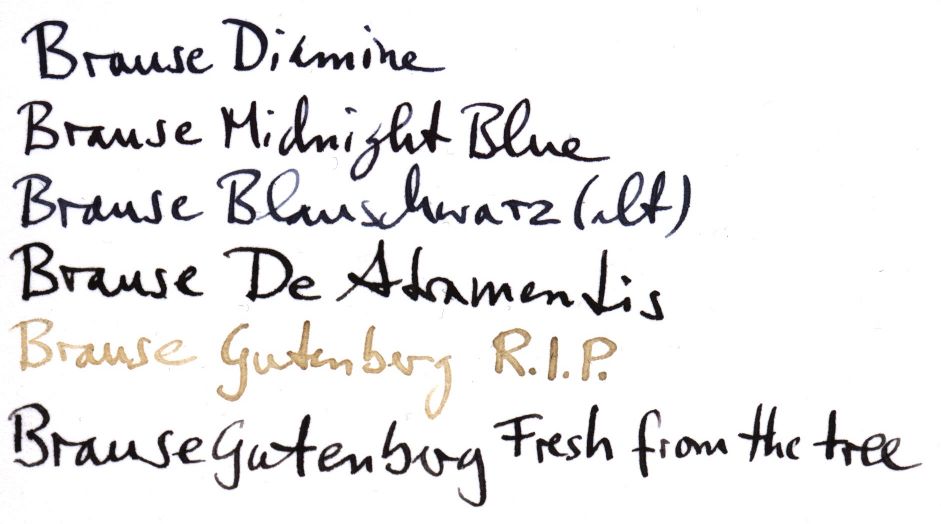 Brause Diamine
Brause Midnight Blue
Brause Blauschwarz (alt)
Brause De Atramentis
Brause Gutenberg R.I.P.
Brause Gutenberg Fresh from the tree